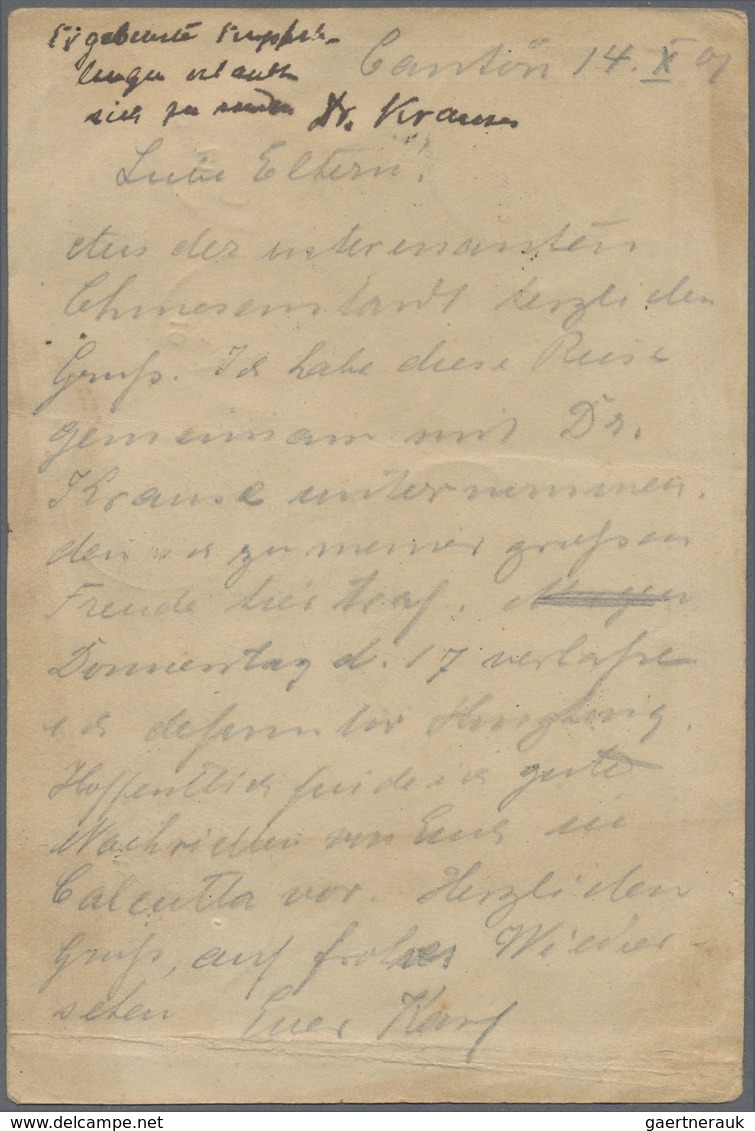 Ergebenste Empfeh-
lungen erlaubt
sich zu senden Dr. Krause
Canton 14. X 01
Liebe Eltern!
Aus der interessanten
Chinesenstadt herzlichen
Gruß. Ich habe diese Reise
gemeinsam mit Dr.
Krause unternommen,
den ich zu meiner großen
Freude hier traf. Morgen
Donnerstag d. 17 verlaße
ich definitiv Hongkong.
Hoffentlich finde ich gute
Nachrichten von Euch in
Calcutta vor. Herzlichen
Gruß, auf frohes Wieder-
sehen Euer Karl
delcampe.net
gaertnerauk